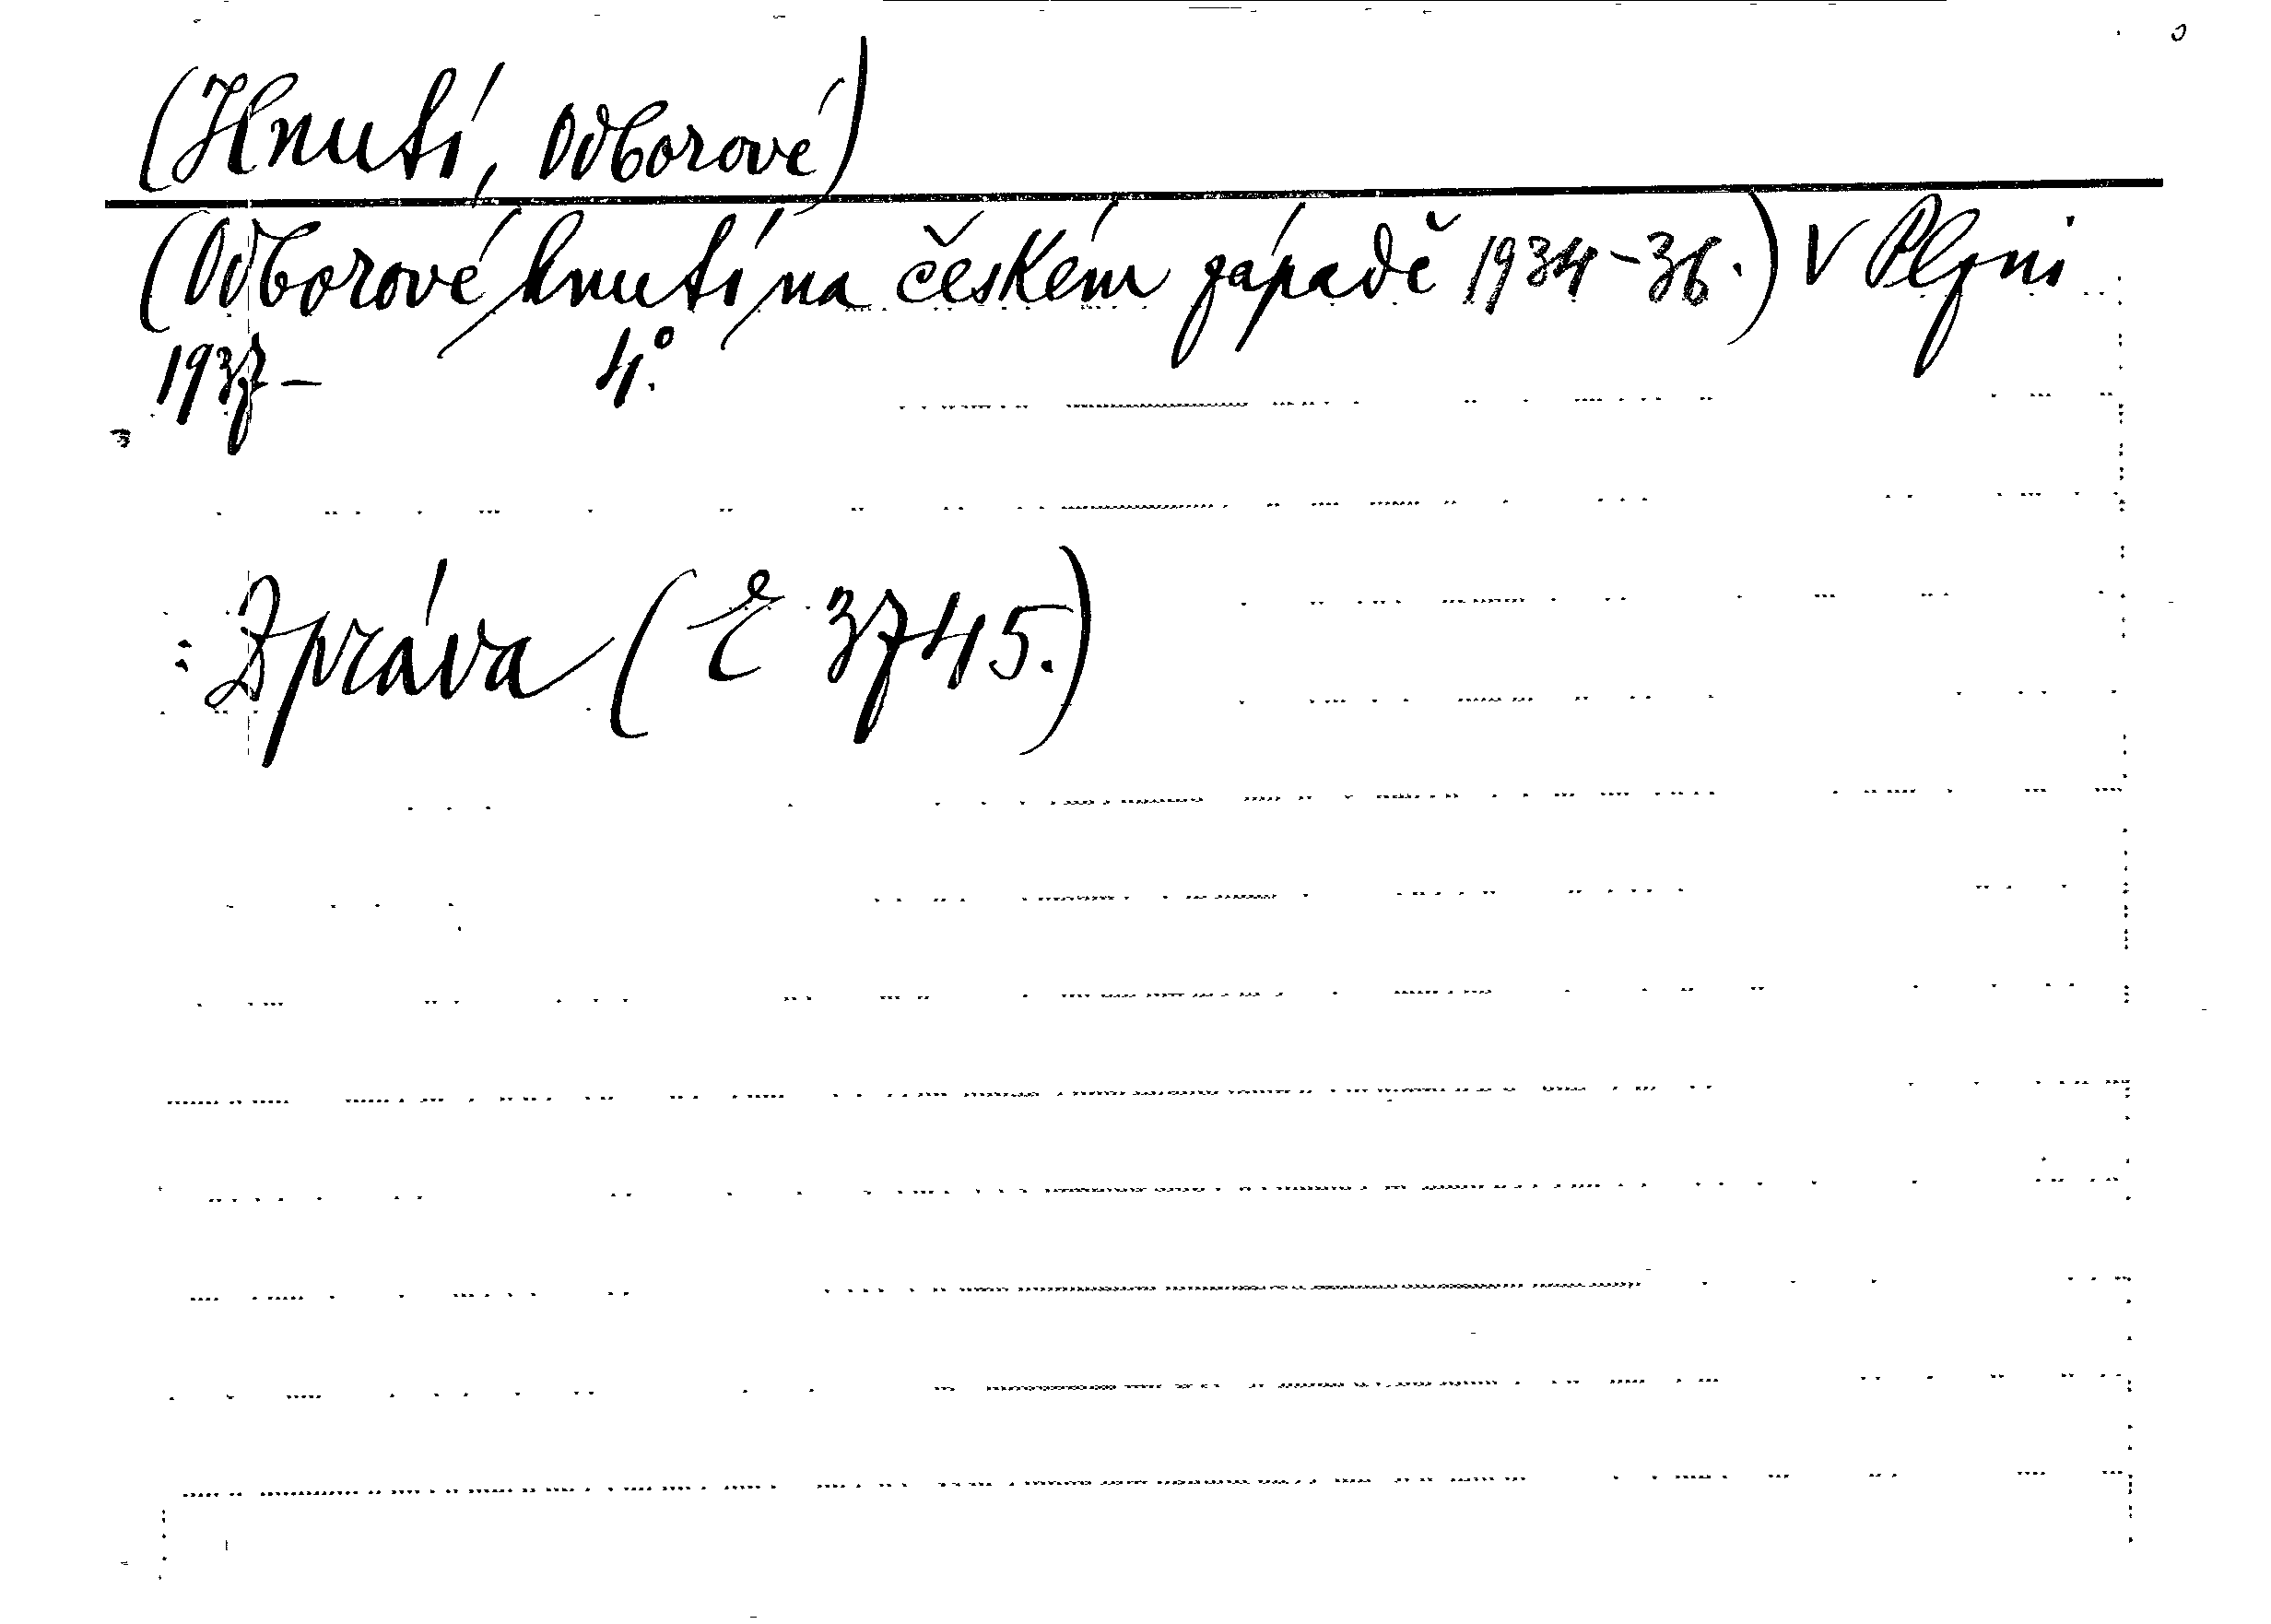 (Hnutí, odborové)
(Odborové hnutí na českém západě 1934-36.) V Plzni
1937- 4°.
: Zpráva (Č 3745.)